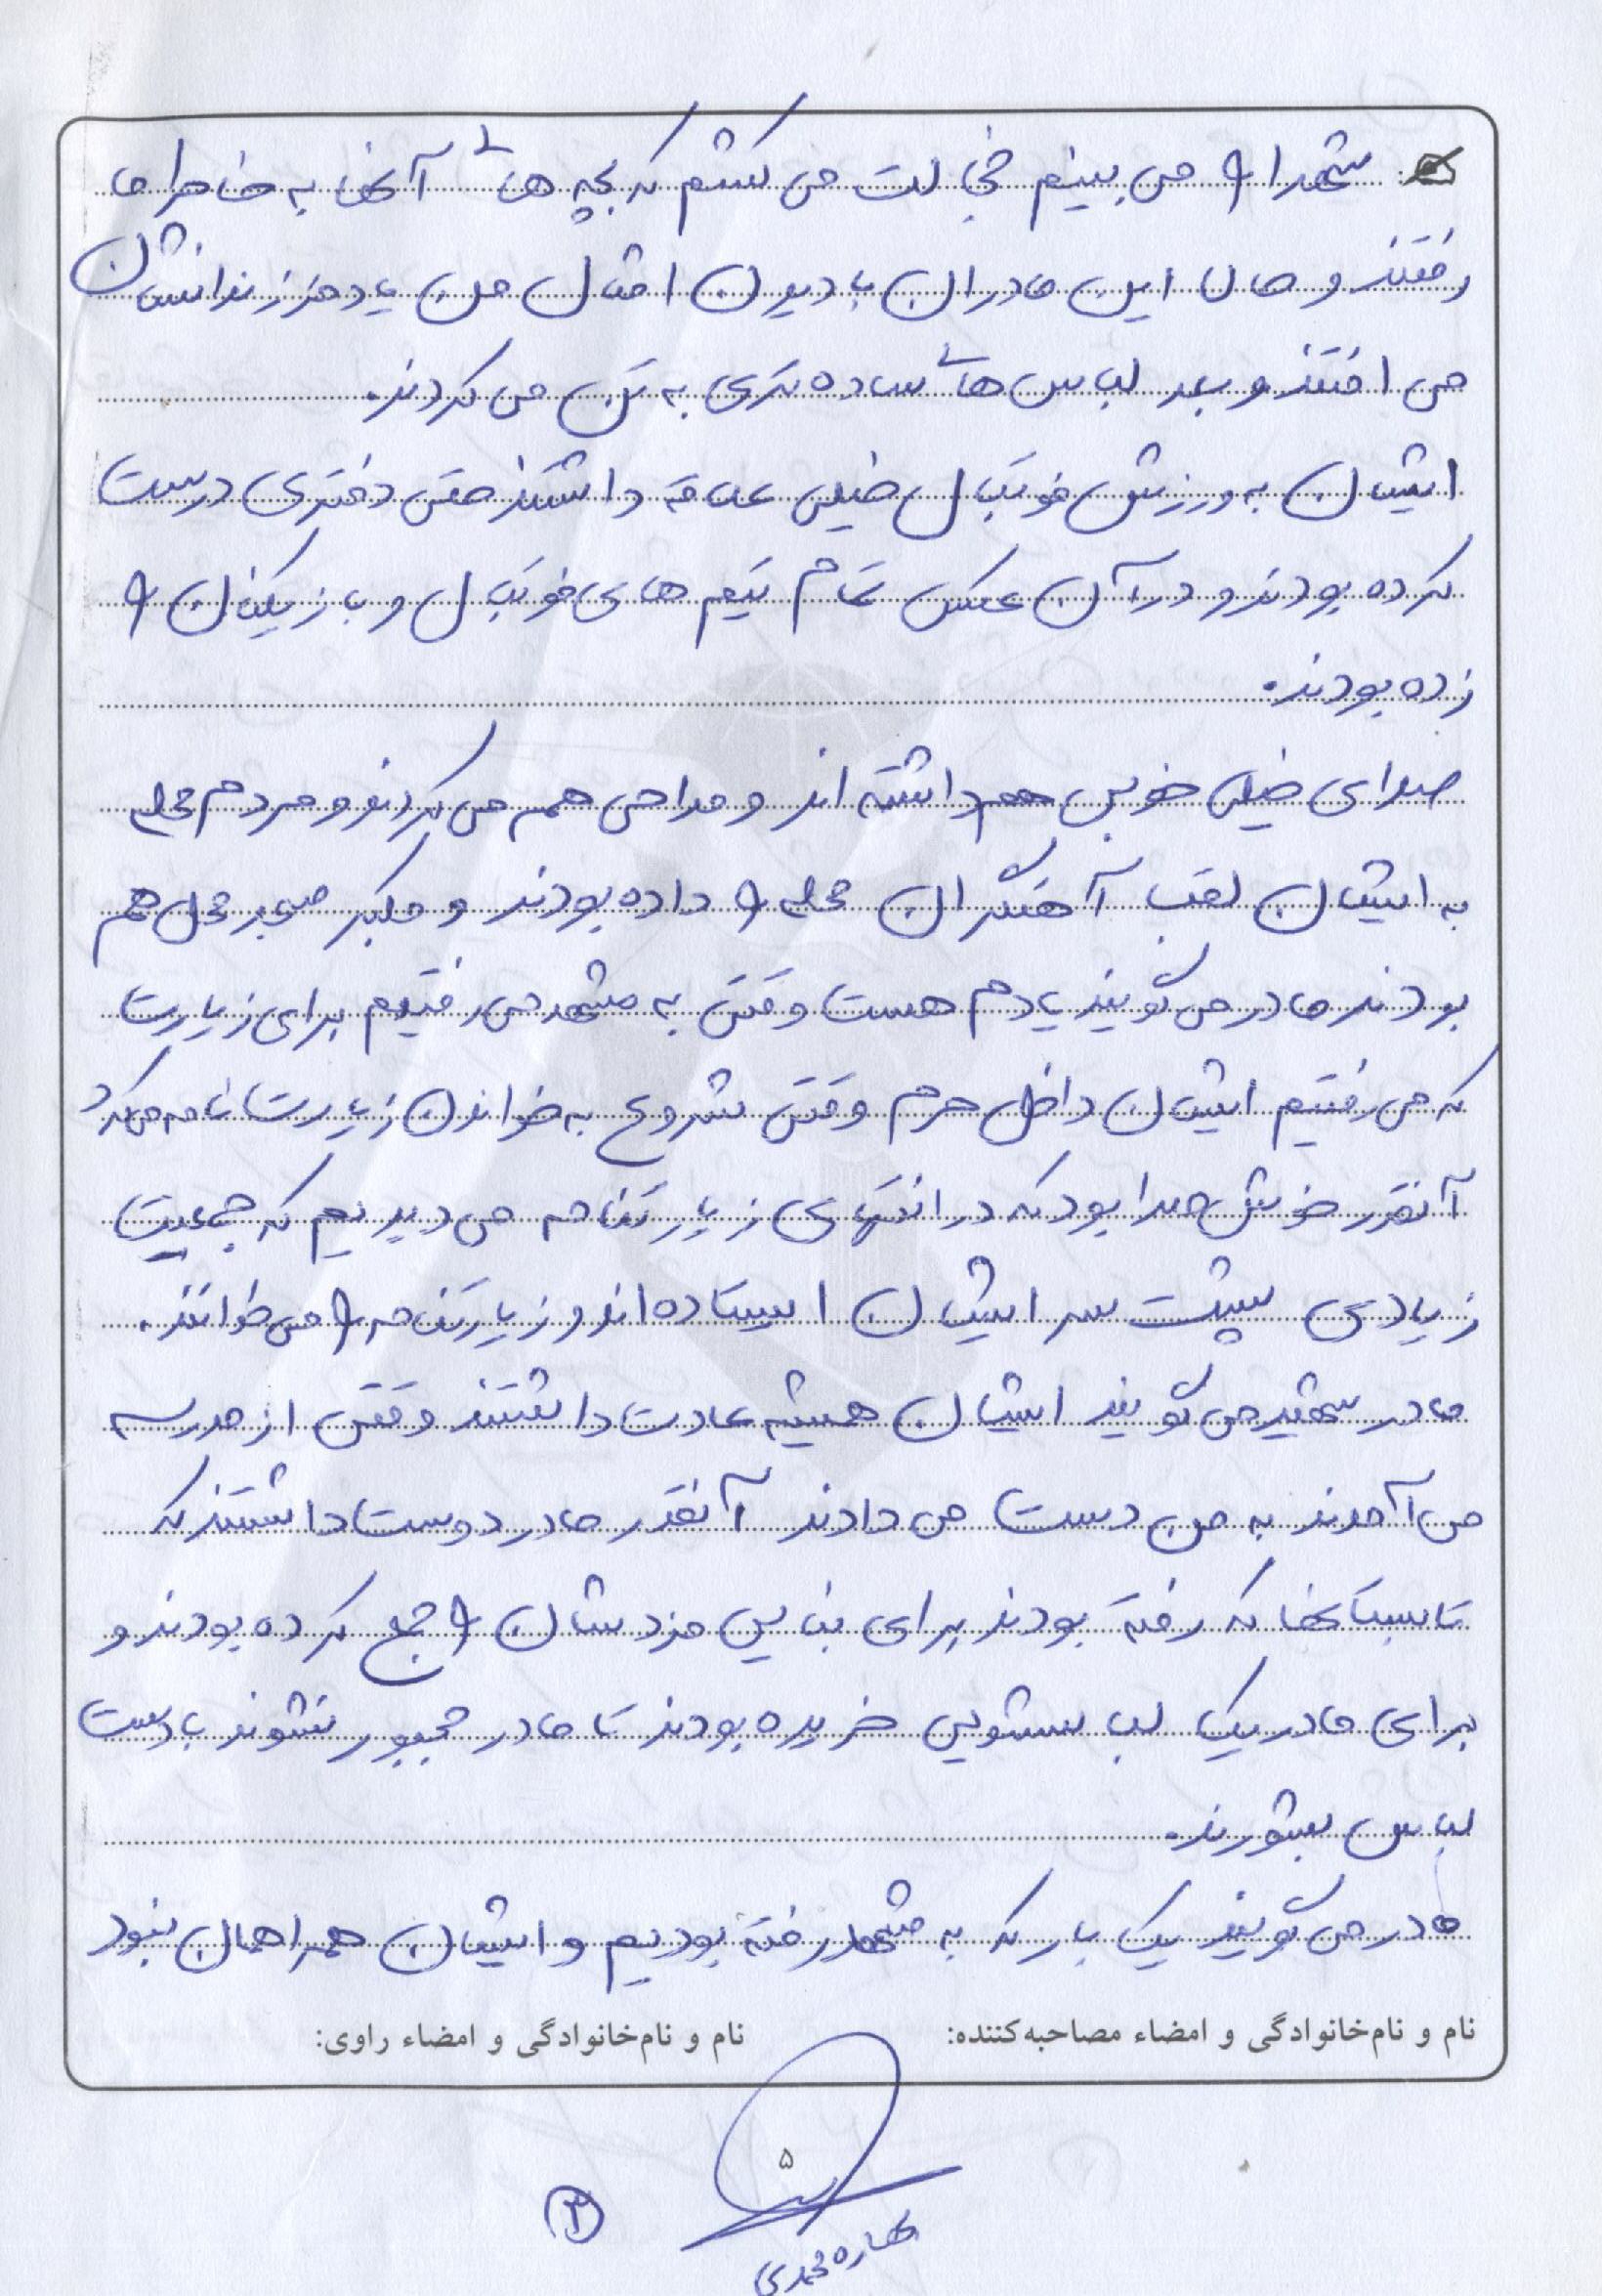 شهدا را می بینم خجالت می کشم که بچه های آنها به خاطر ما
رفتند و حالا این مادران با دیدن امثال من یاد فرزندانشان
می افتند و بعد لباس های ساده تری به تن می کردند.
ایشان به ورزش فوتبال خیلی علاقه داشتند حتی دفتری درست
کرده بودند و در آن عکس تمام تیم های فوتبال و بازیکنان را
زده بودند.
صدای خیلی خوبی هم داشته اند و مداحی هم می کردند و مردم محله
به ایشان لقب آهنگران محله را داده بودند و مکبر مسجد محل هم
بودند مادر می گویند یادم هست وقتی به مشهد می رفتیم برای زیارت
که می رفتیم ایشان داخل حرم وقتی شروع به خواندن زیارت نامه می کرد
آنقدر خوش صدا بود که در انتهای زیارتنامه می دیدیم که جمعیت
زیادی پشت سر ایشان ایستاده اند و زیارتنامه را می خوانند.
مادر شهید می گویند ایشان همیشه عادت داشتند وقتی از مدرسه
می آمدند به من دست می دادند آنقدر مادر دوست داشتند که
تابستانها که رفته بودند برای بنایی مزدشان را جمع کرده بودند و
برای مادر یک لباسشویی خریده بودند تا مادر مجبور نشوند با دست
لباس بشورند.
مادر می گویند یک بار که به مشهد رفته بودیم و ایشان همراهمان نبود
نام و نام‌خانوادگی و امضاء مصاحبه‌کننده: نام و نام‌خانوادگی و امضاء راوی:
۵
۳
محمدی